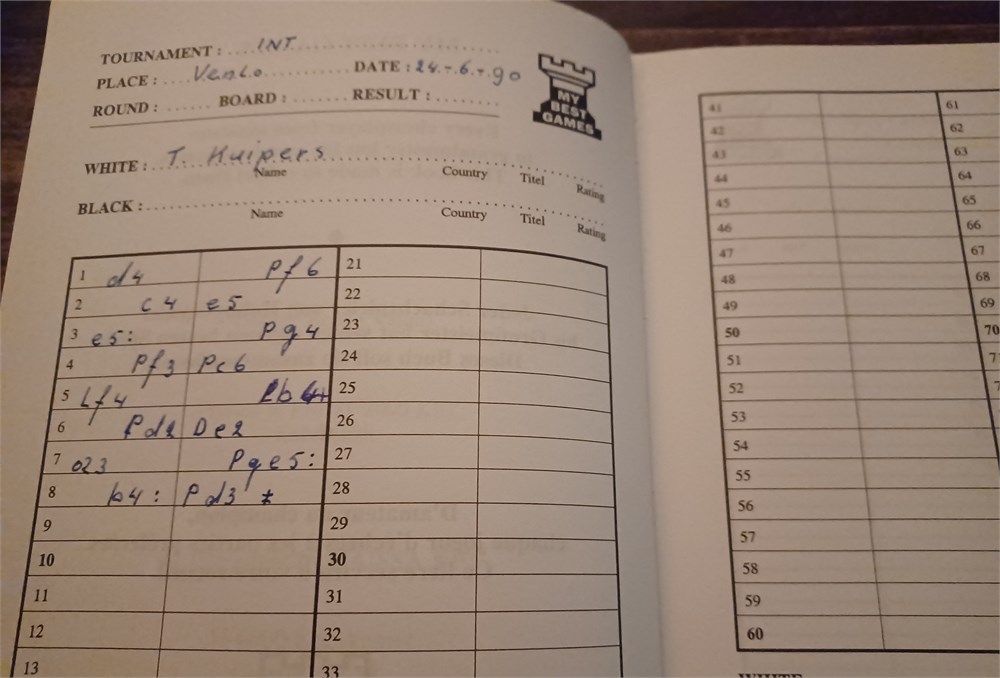 TOURNAMENT : INT.
PLACE : Venlo DATE : 24.-6.-90
ROUND : BOARD : RESULT :
MY
BEST
GAMES
WHITE : T. Kuipers
Name Country Titel Rating
BLACK :
Name Country Titel Rating
1 d4 Pf6 21
2 c4 e5 22
3 e5: Pg4 23
4 Pf3 Pc6 24
5 Lf4 25
6 Pd2 De2 26
7 023 Pge5: 27
8 b4: Pd3 28
9 29
10 30
11 31
12 32
13 33
41 61
42 62
43 63
44 64
45 65
46 66
47 67
48 68
49 69
50 70
51
52
53
54
55
56
57
58
59
60